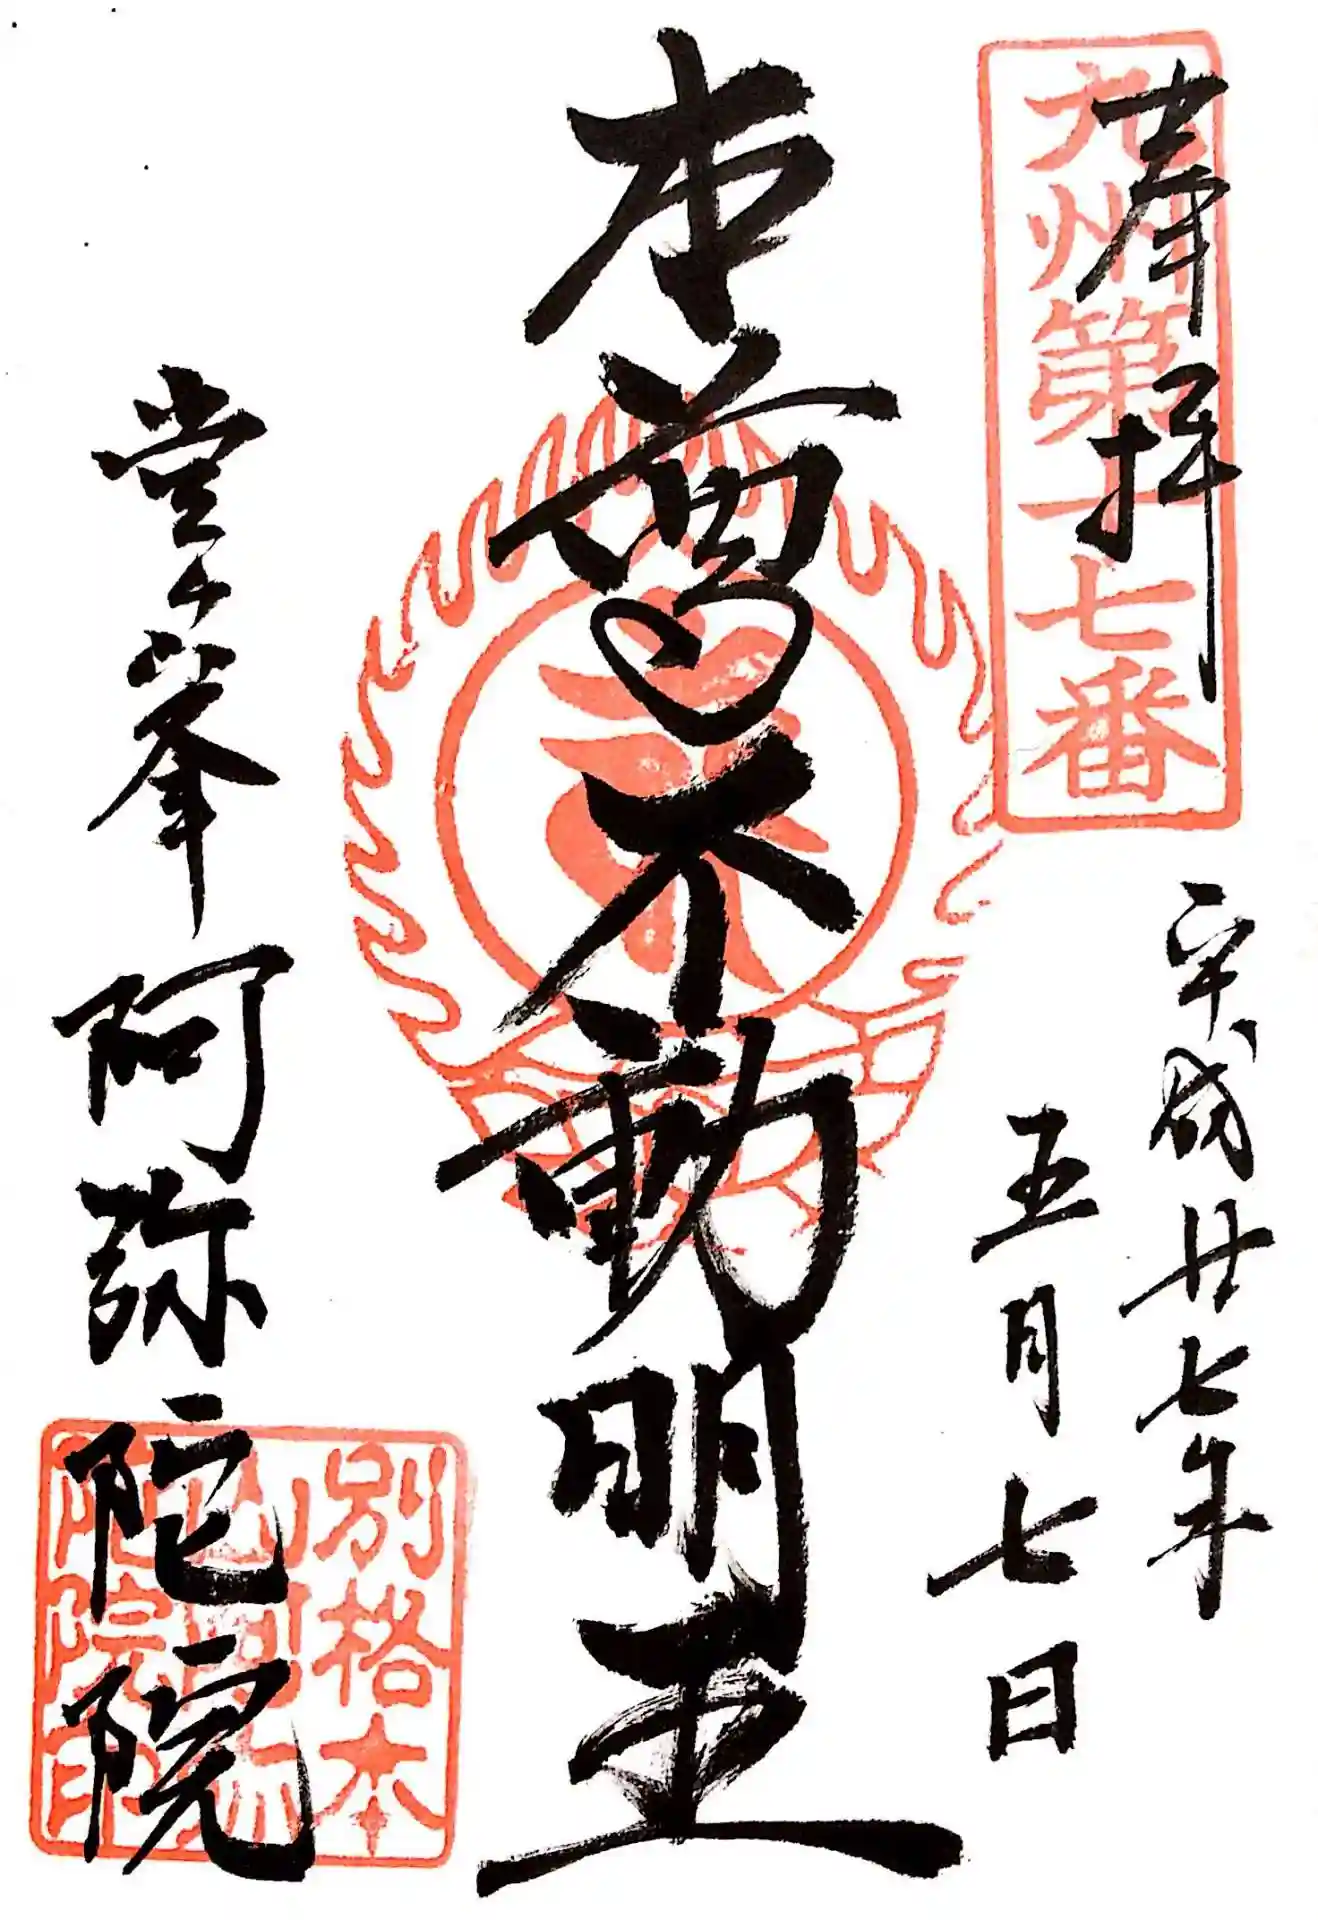 奉拝
九州第十七番
平成廿七年
五月七日
本尊不動明王
堂ヶ峯 阿弥陀院
別格本
山阿弥
陀院印